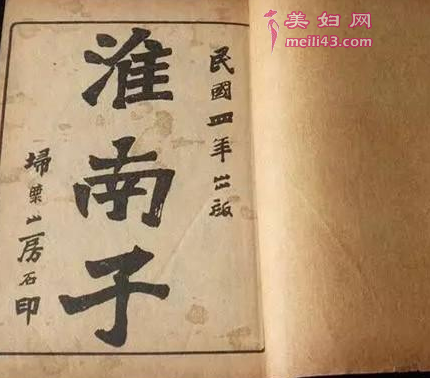 民國四年出版
淮南子
掃葉山房石印
美妇网
meili43.com